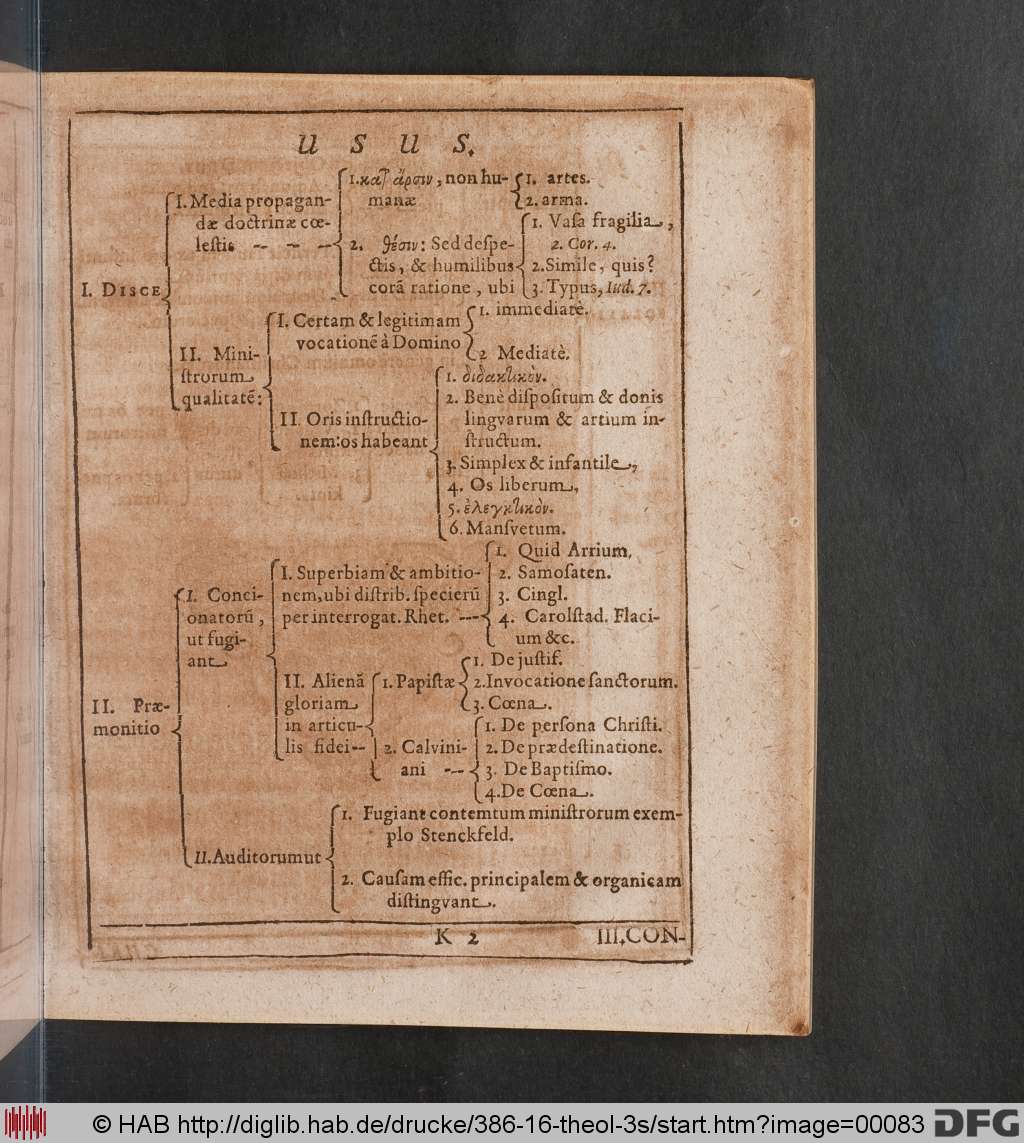 USUS.
I. DISCE
I. Media propagan-
dæ doctrinæ cœ-
lestis -- -- --
1. κατ' ἄρσιν, non hu-
manæ
1. artes.
2. arma.
2. θέσιν: Sed despe-
ctis, & humilibus
corā ratione, ubi
1. Vasa fragilia,
2. Cor. 4.
2. Simile, quis?
3. Typus, Iud. 7.
II. Mini-
strorum
qualitatē:
I. Certam & legitimam
vocationē à Domino
1. immediatè.
2 Mediatè.
II. Oris instructio-
nem: os habeant
1. διδακτικὸν.
2. Benè dispositum & donis
lingvarum & artium in-
structum.
3. Simplex & infantile,
4. Os liberum,
5. ἐλεγκτικὸν.
6. Mansvetum.
II. Præ-
monitio
I. Conci-
onatorū,
ut fugi-
ant
I. Superbiam & ambitio-
nem, ubi distrib. specierū
per interrogat. Rhet. ---
1. Quid Arrium,
2. Samosaten.
3. Cingl.
4. Carolstad. Flaci-
um &c.
II. Alienā
gloriam
in articu-
lis fidei --
1. Papistæ
1. De justif.
2. Invocatione sanctorum.
3. Cœna.
2. Calvini-
ani ---
1. De persona Christi.
2. De prædestinatione.
3. De Baptismo.
4. De Cœna.
II. Auditorum ut
1. Fugiant contemtum ministrorum exem-
plo Stenckfeld.
2. Causam effic. principalem & organicam
distingvant.
K 2
III. CON-
© HAB http://diglib.hab.de/drucke/386-16-theol-3s/start.htm?image=00083
DFG